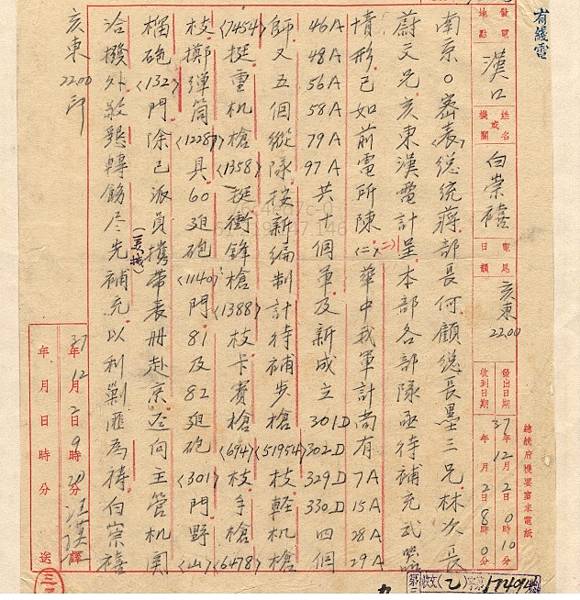 有綫電
發電地點
漢口
姓名或機關
白崇禧
韻目日期
亥東
22.00
發出日期
37年12月2日0時10分
收到日期
37年12月2日8時0分
總統府機要室來電紙
南京○密(表)總統蔣部長何顧總長墨三兄林次長
蔚文兄亥東漢電計呈本部各部隊亟待補充武器
情形已如前電所陳(二)華中我軍計尚有7A 15A 28A 29A
46A 48A 56A 58A 79A 97A共十個軍及新成立301D 302D 329D 330D四個
師又五個縱隊按新編制計待補步槍(51954)枝輕机槍
(7454)挺重机槍(1358)挺衝鋒槍(1388)枝卡賓槍(694)枝手槍(6478)
枝擲彈筒(1228)具60迫砲(1140)門81及82迫砲(301)門野(山)
榴砲(132)門除已派員攜帶表冊赴京逕向主管机関
洽撥外敬懇轉飭尽先補充以利剿匪為禱白崇禧
亥東22.00印
37年12月2日9時20分
年月日時分
譯
送
收文(乙)字第17494